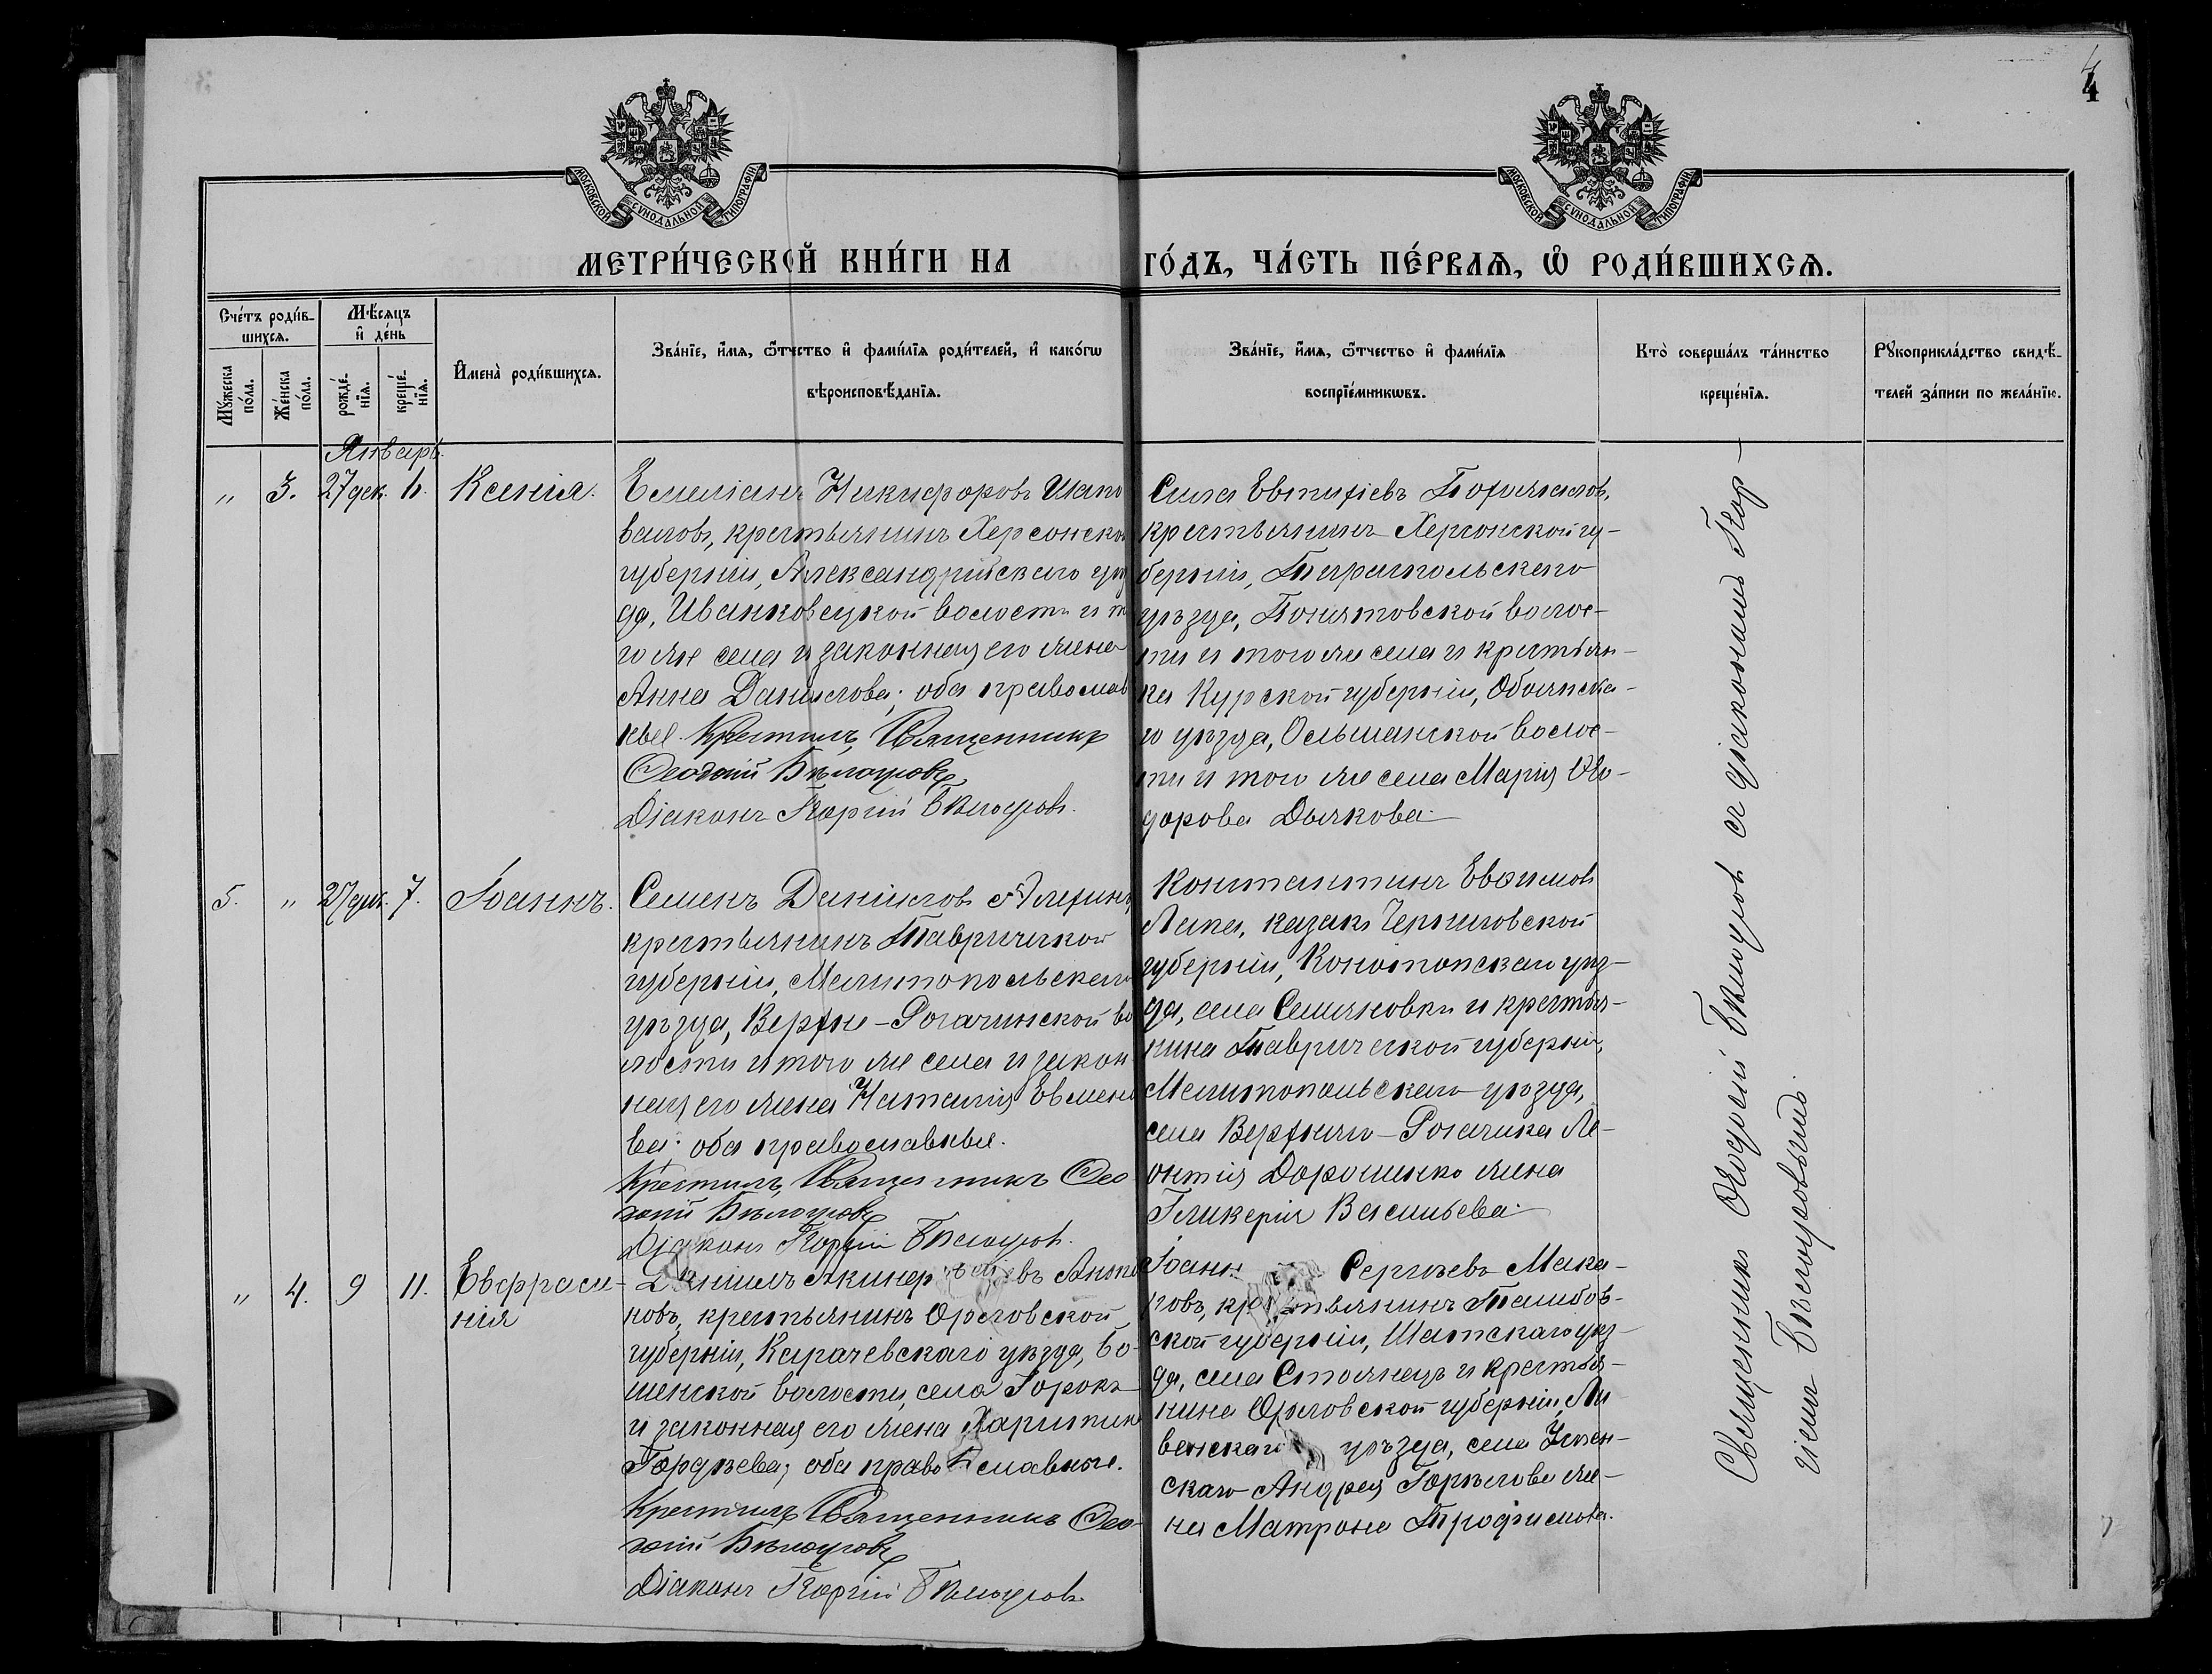 4
МОСКОВСКОЙ СѴНОДАЛЬНОЙ ТИПОГРАФІИ
МОСКОВСКОЙ СѴНОДАЛЬНОЙ ТИПОГРАФІИ
МЕТРИ́ЧЕСКОЙ КНИ́ГИ НА ГО́ДЪ, ЧА́СТЬ ПЕ́РВАѦ, Ѡ҆ РОДИ́ВШИХСѦ.
Сче́тъ роди́в-
шихсѧ.
Мꙋ́жеска по́ла.
Же́нска по́ла.
Мѣ́сѧцъ
и҆ де́нь
рожде́-
нїѧ.
креще́-
нїѧ.
И҆мена̀ роди́вшихсѧ.
Зва́нїе, и҆́мѧ, ѻ҆́тчество и҆ фами́лїѧ роди́телей, и҆ како́гѡ
вѣроисповѣ́данїѧ.
Зва́нїе, и҆́мѧ, ѻ҆́тчество и҆ фами́лїѧ
воспрїе́мникѡвъ.
Кто̀ соверша́лъ та́инство
креще́нїѧ.
Рꙋкоприкла́дство свидѣ́-
телей за́писи по жела́нїю.
Январь.
„ 3. 27 дек. 6. Ксенія.
Емеліанъ Никифоровъ Шапо
валовъ, крестьянинъ Херсонской
губерніи, Александрійскаго уѣз
да, Иванковецкой волости и то
го же села и законная его жена
Анна Данилова; оба православ
ные. Крестилъ Священникъ
Феодосій Бѣлоусовъ
Діаконъ Георгій Бѣлоусовъ.
Сила Евтихіевъ
крестьянинъ Херсонской гу-
берніи, Тираспольскаго
уѣзда, Понятовской волос-
ти и того же села и крестьян-
ка Курской губерніи, Обоянска-
го уѣзда, Ольшанской волос-
ти и того же села Марія Ѳео-
дорова Дьякова.
5. „ 27 дек. 7. Іоаннъ.
Семенъ Даніиловъ Алехинъ,
крестьянинъ Таврической
губерніи, Мелитопольскаго
уѣзда, Верхне-Рогачинской во
лости и того же села и закон
ная его жена Наталія Евмені
ева; оба православные.
Крестилъ, Священникъ Фео
досій Бѣлоусовъ
Діаконъ Георгій Бѣлоусовъ.
Константинъ Евѳимовъ
Лапа, казакъ Черниговской
губерніи, Конотопскаго уѣз-
да, села Семяновки и крестья-
нина Таврической губерніи,
Мелитопольскаго уѣзда,
села Верхняго-Рогачика Ле-
онтія Дорошенко жена
Гликерія Васильева.
„ 4. 9 11. Евфраси-
нія
Даніилъ
ковъ, крестьянинъ Орловской
губерніи, Карачевскаго уѣзда, Бо-
шенской волости, села Горокъ
и законная его жена Харитина
Гордѣева; оба православные.
Крестилъ Священникъ Фео-
досій Бѣлоусовъ
Діаконъ Георгій Бѣлоусовъ.
Іоаннъ Сергѣевъ Мака-
ровъ, крестьянинъ Тамбов-
ской губерніи, Шатскаго уѣз-
да, села и крестья-
нина Орловской губерніи, Ли
венскаго уѣзда, села
скаго Андрея Горѣлова же-
на Матрона Трофимова.
Священникъ Ѳеодосій Бѣлоусовъ съ діакономъ Геор-
гіемъ Бѣлоусовымъ.